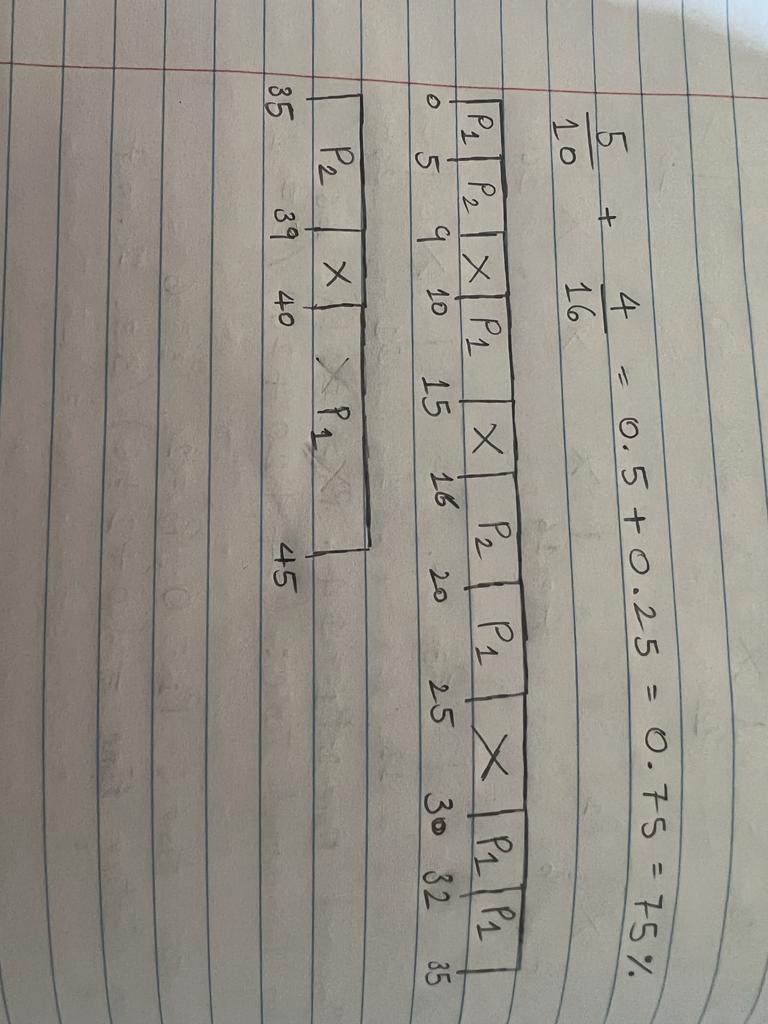 5/10 + 4/16 = 0.5 + 0.25 = 0.75 = 75%
P1 P2 X P1 X P2 P1 X P1 P1
0 5 9 10 15 16 20 25 30 32 35
P2 X P1
35 39 40 45